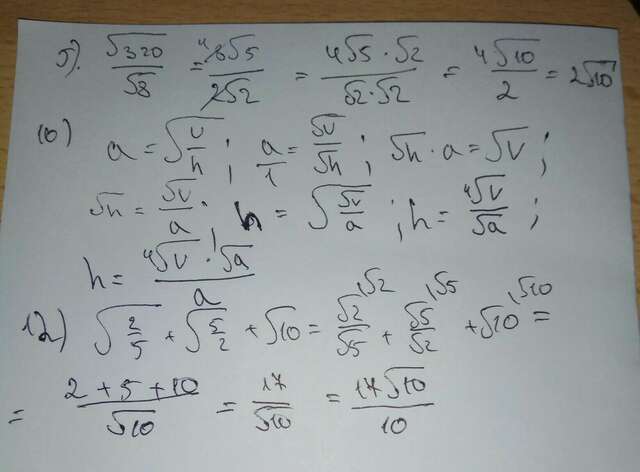 9). √320/√8 = ⁴8√5/2√2 = 4√5·√2/√2·√2 = 4√10/2 = 2√10
10) a = √(v/h); a/1 = √v/√h; √h·a = √v;
√h = √v/a; h = √(√v/a); h = ⁴√v/√a;
h = ⁴√v·√a/a
12) √(2/5) + √(5/2) + √10 = √2/√5 ⁽√2 + √5/√2 ⁽√5 + √10 ⁽√10 =
= 2+5+10/√10 = 17/√10 = 17√10/10